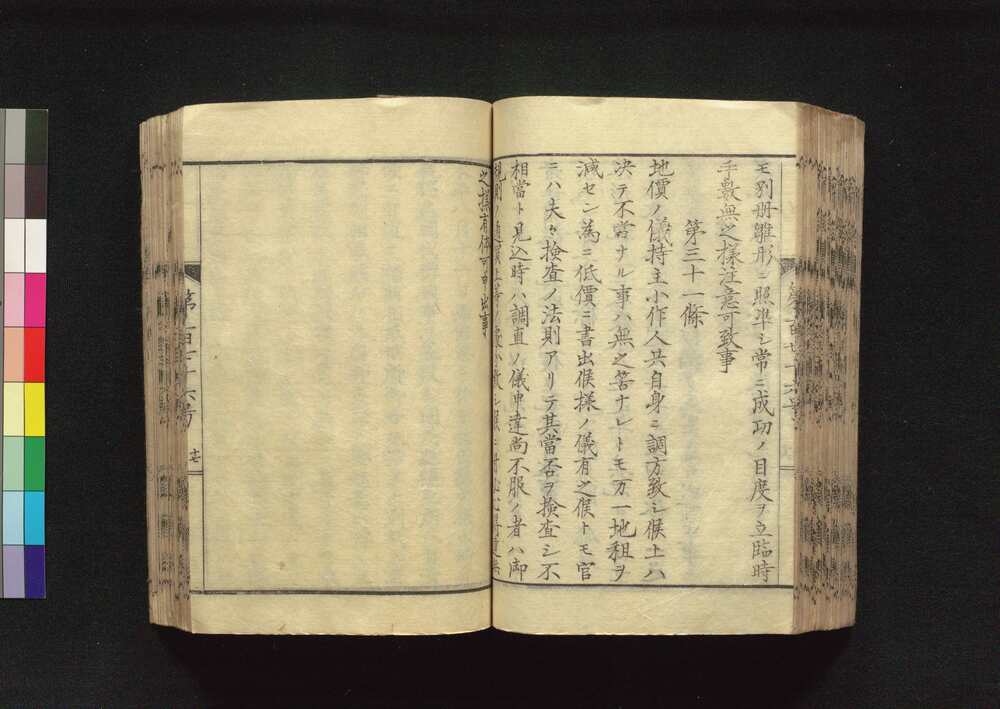 モ別冊雛形ニ照準シ常ニ成功ノ目度ヲ立臨時
手數無之樣注意可致事
第三十一條
地價ノ儀持主小作人共自身ニ調方致シ候上ハ
决テ不當ナル事ハ無之筈ナレトモ万一地租ヲ
減セン為ニ低價ニ書出候樣ノ儀有之候トモ官
ニハ夫々檢査ノ法則アリテ其當否ヲ檢査シ不
相當ト見込時ハ調直ノ儀申達尚不服ノ者ハ御
規則ノ通
之樣
事
第百七十六号